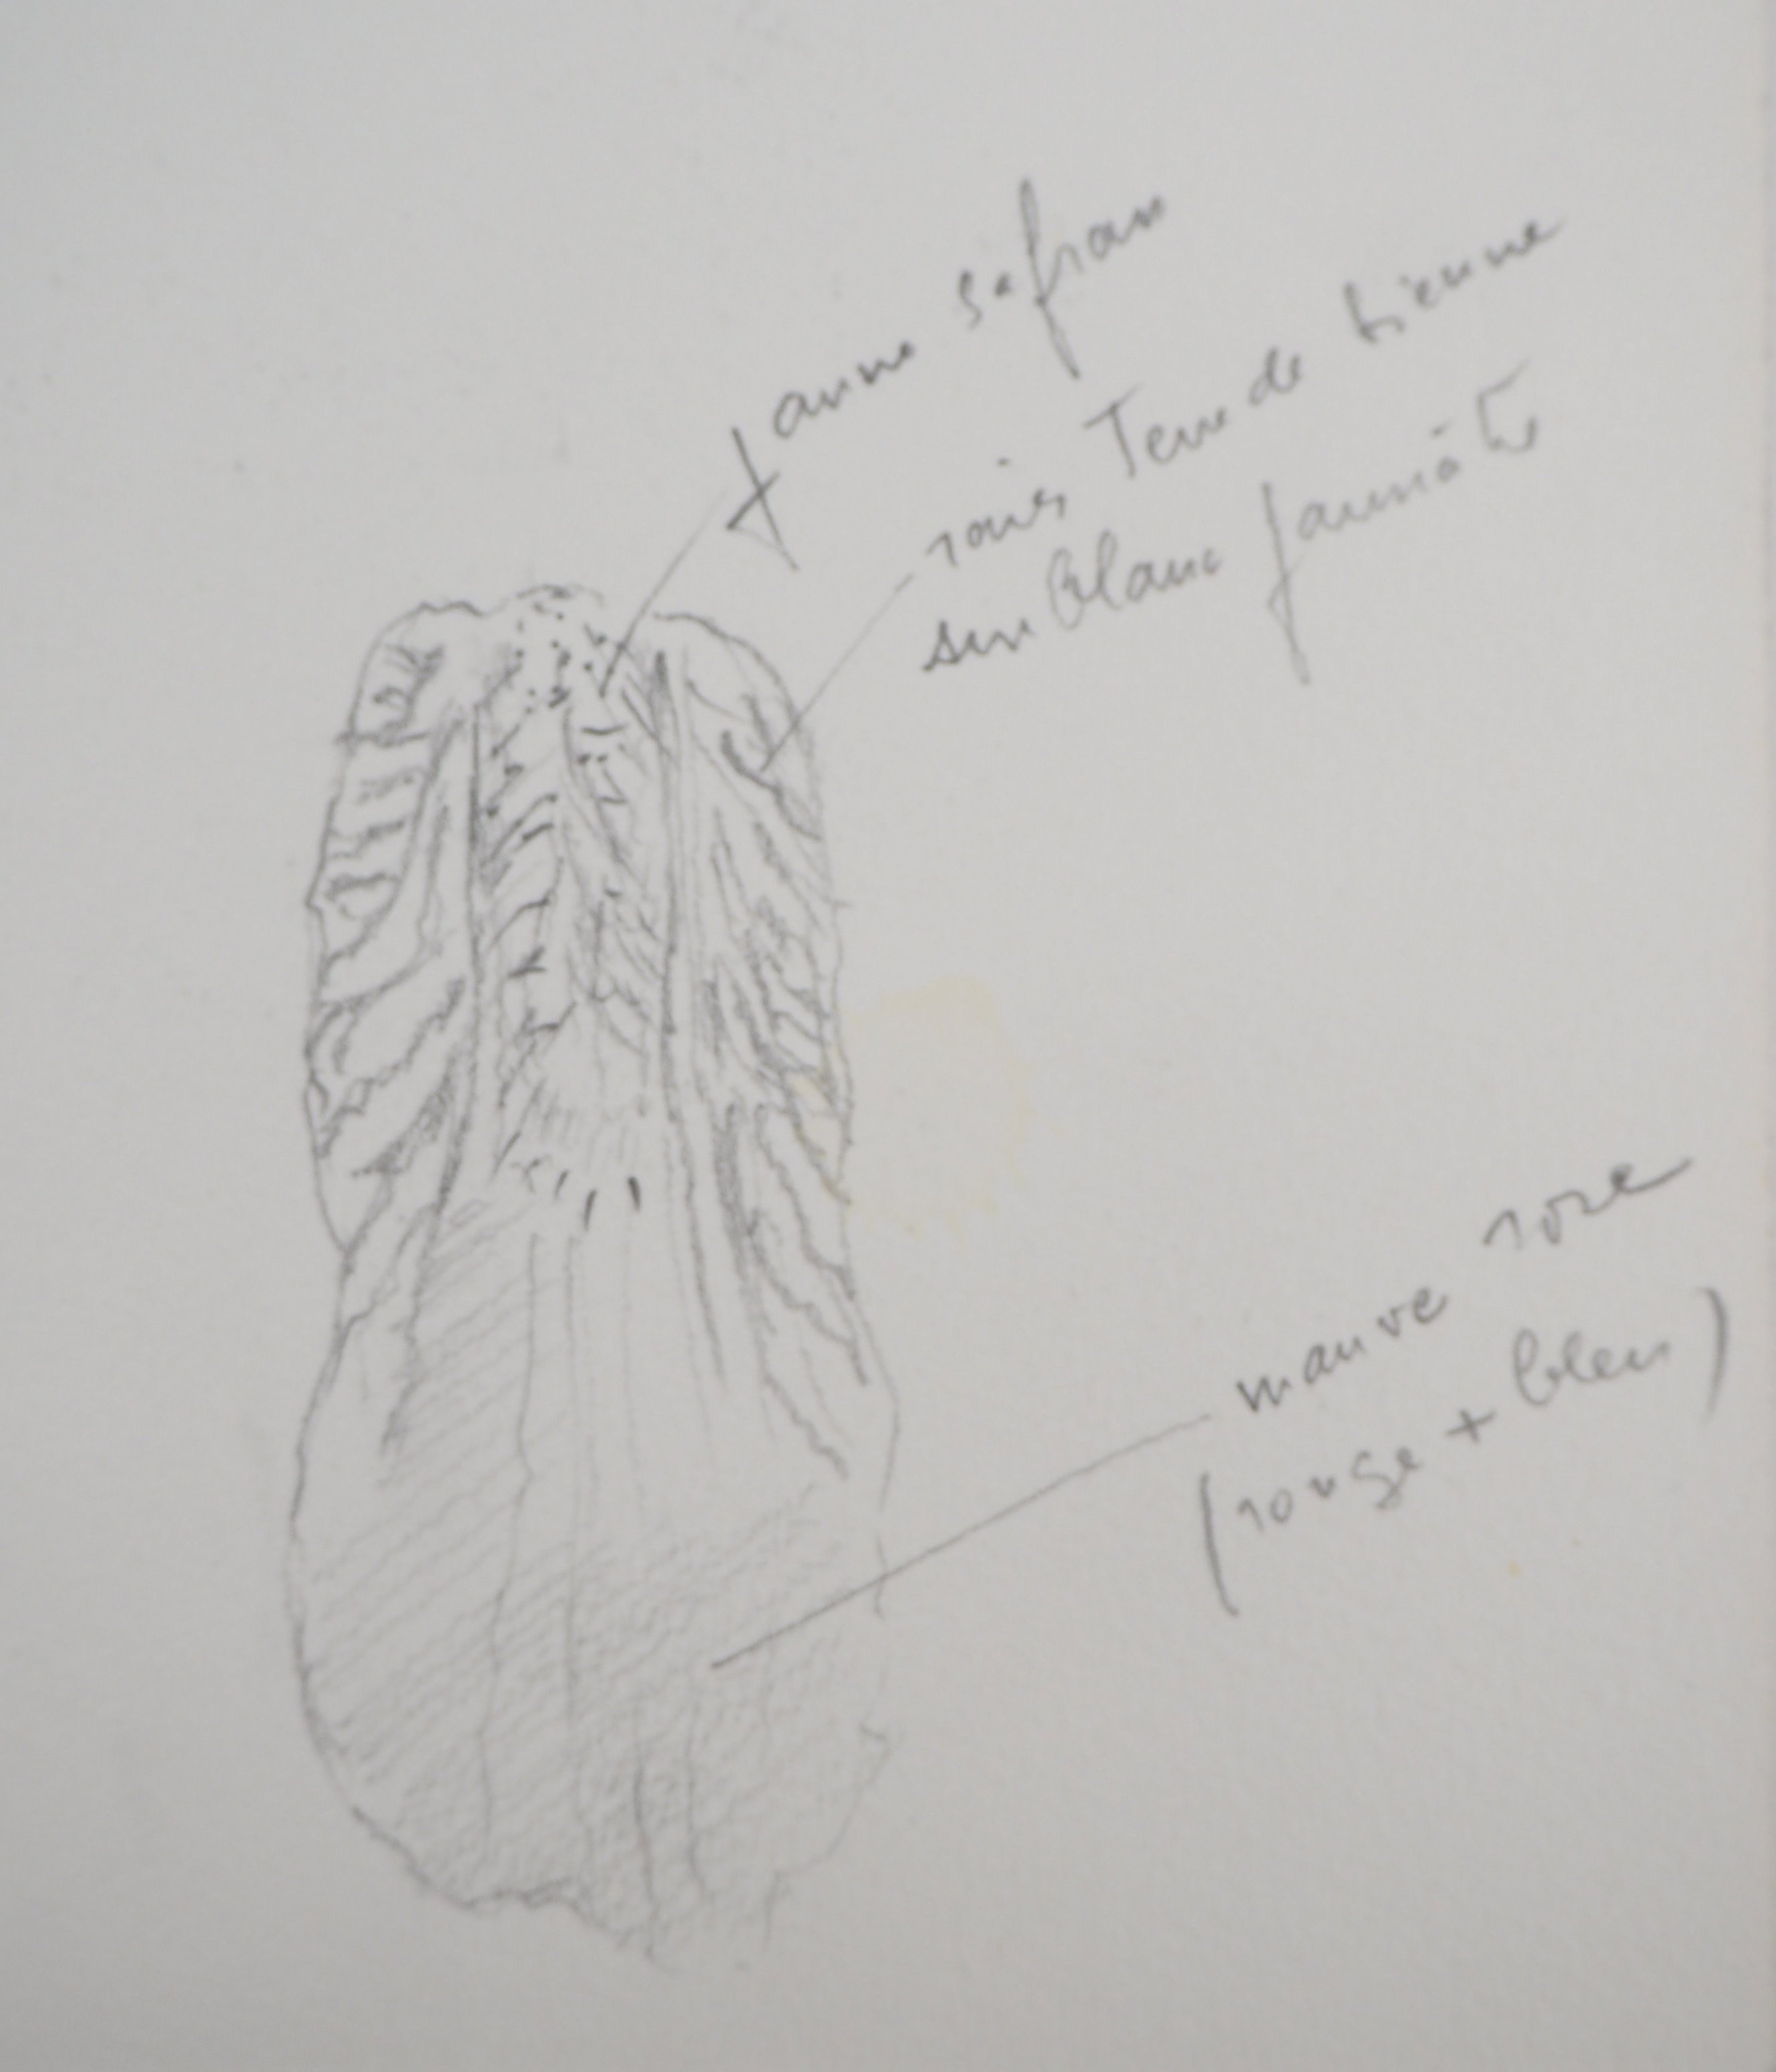 Jaune safran
raies Terre de Sienne
sur blanc jaunâtre
mauve rose
(rouge + bleu)